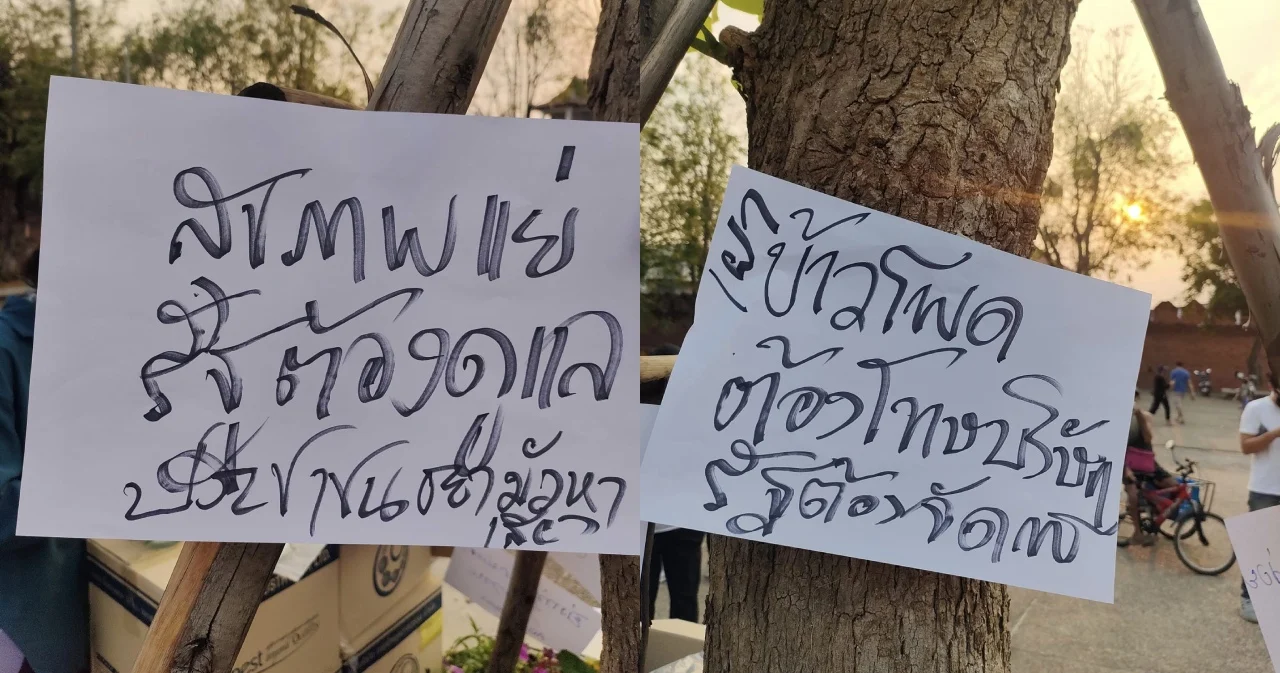 สภาพแย่
รัฐต้องดูแล
ประชาชนอย่ามัวหา
เผาข้าวโพด
ต้องโทษบริษัท
รัฐต้องจัดการ